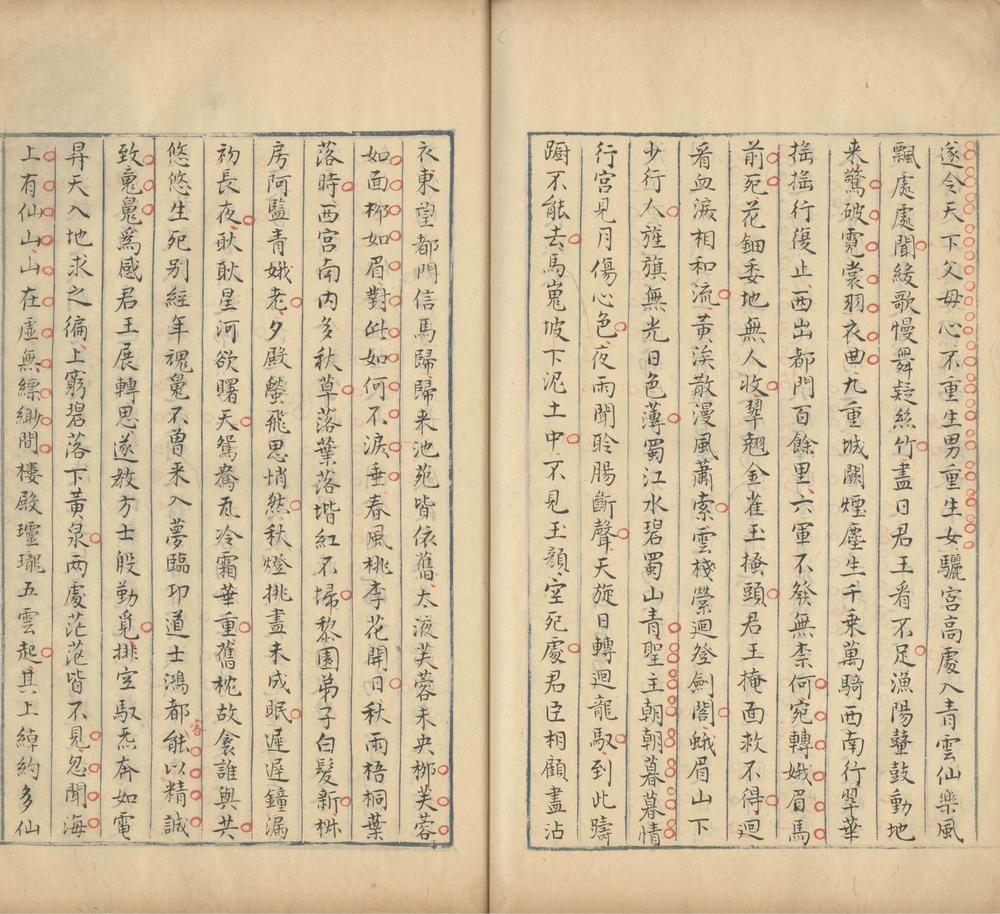 遂令天下父母心不重生男重生女驪宮高處入青雲仙樂風
飄處處聞緩歌慢舞疑絲竹盡日君王看不足漁陽鼙鼓動地
来驚破霓裳羽衣曲九重城闕煙塵生千乗萬騎西南行翠華
揺揺行復止西出都門百餘里六軍不發無柰何宛轉娥眉馬
前死花鈿委地無人收翠翹金雀玉搔頭君王掩面救不得迴
看血淚相和流黃埃散漫風蕭索雲棧縈迴登劍閣蛾眉山下
少行人旌旗無光日色薄蜀江水碧蜀山青聖主朝朝暮暮情
行宮見月傷心色夜雨聞聆腸斷聲天旋日轉迴龍馭到此躊
蹰不能去馬嵬坡下泥土中不見玉顏空死處君臣相顧盡沾
衣東望都門信馬歸歸来池苑皆依舊太液芙蓉未央栁芙蓉
如面栁如眉對此如何不淚垂春風桃李花開日秋雨梧桐葉
落時西宮南内多秋草落葉落堦紅不掃黎園弟子白髮新椒
房阿監青娥老夕殿螢飛思悄然秋燈挑盡未成眠遲遲鐘漏
初長夜耿耿星河欲曙天鴛鴦瓦冷霜華重舊枕故衾誰與共
悠悠生死别經年魂夢不曾来入夢臨卭道士鴻都能以精誠
客
致䰟䰟爲感君王展轉思遂教方士殷勤覓排空馭炁奔如電
昇天入地求之徧上窮碧落下黄泉兩處茫茫皆不見忽聞海
上有仙山山在虛無縹緲間樓殿瓏瓏五雲起其上綽約多仙